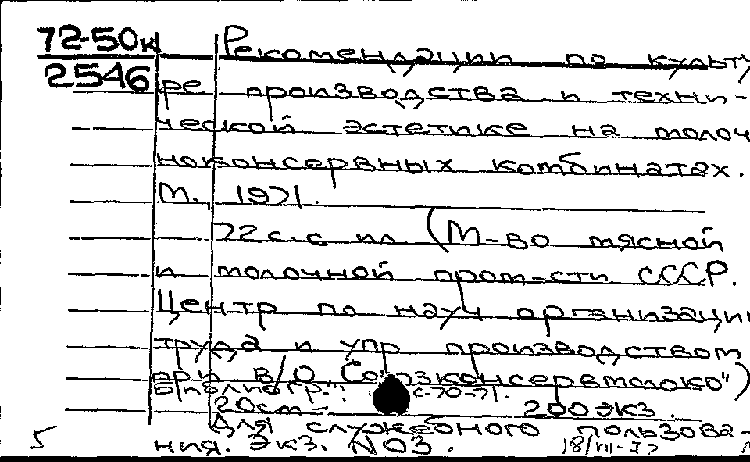 72-50к
2546
Рекомендации по культу
ре производства и техни-
ческой эстетике на молоч
ноконсервных комбинатах.
М. 1971.
72 с. с ил (М-во мясной
и молочной пром-сти СССР.
Центр по науч организации
труда и упр производством
при В/О "Союзконсервмолоко")
Библиогр.: с. 70-71.
20см. 200 экз
Для служебного пользова-
ния. Экз. №03.
5